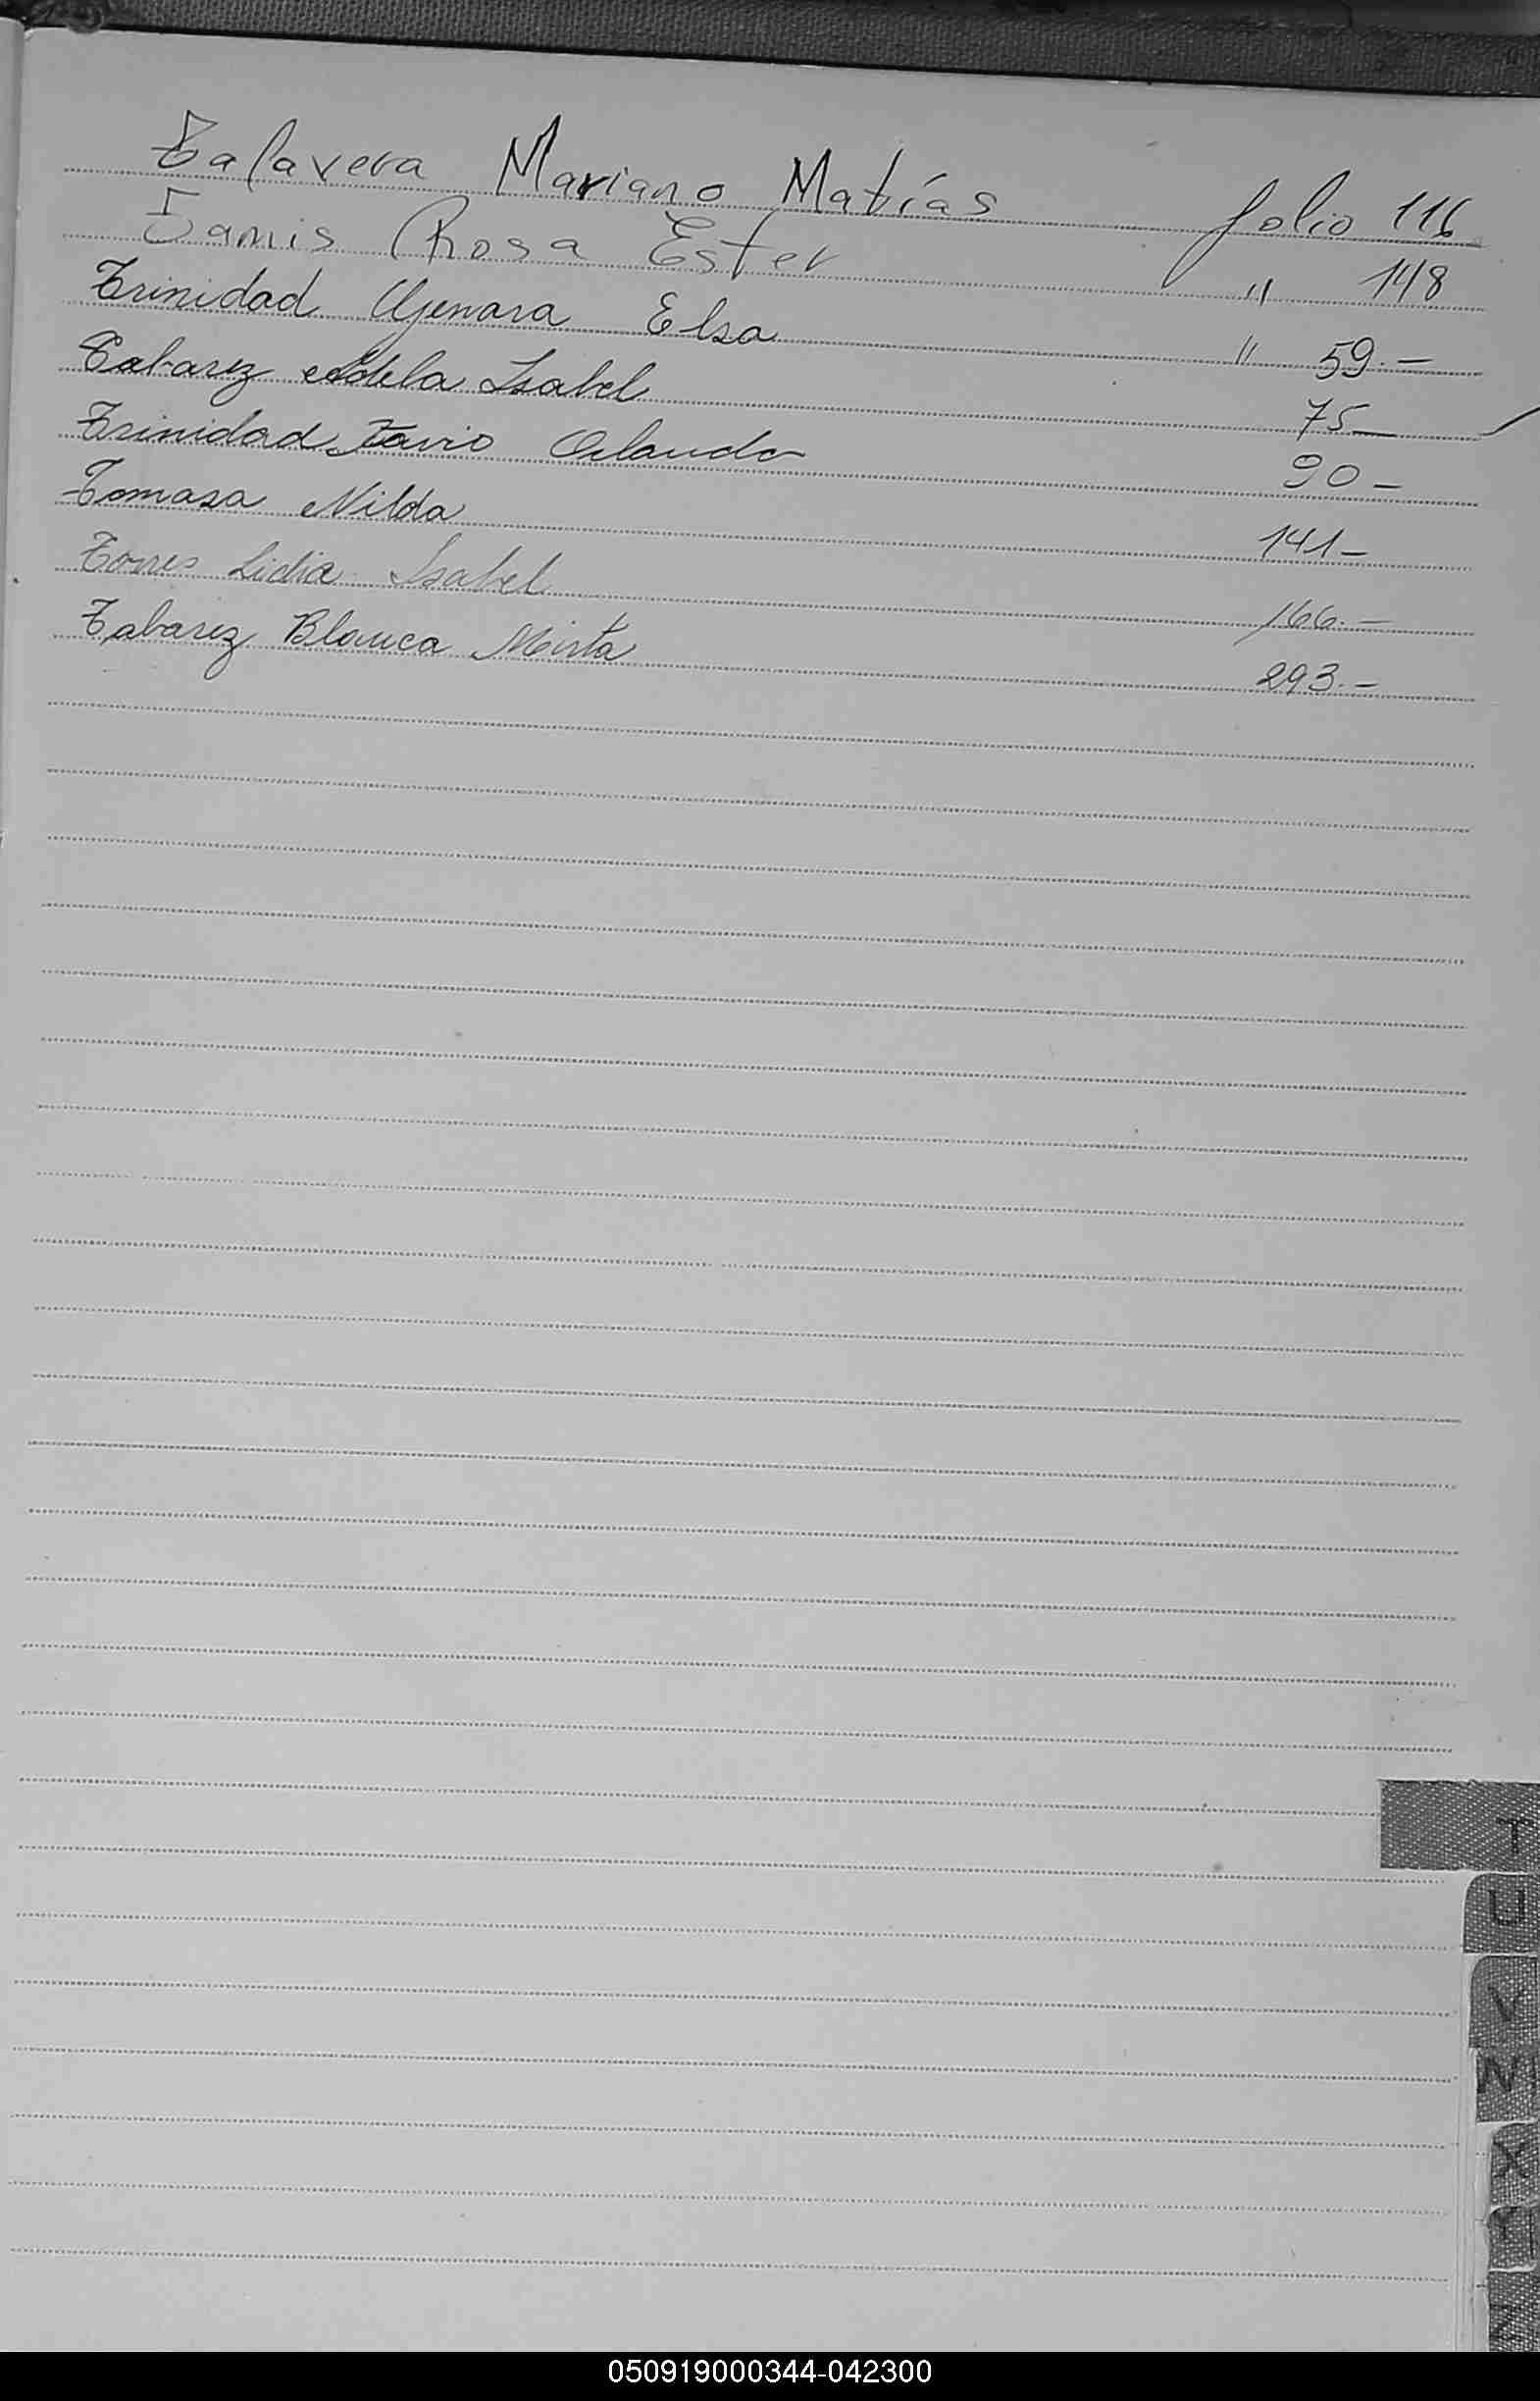 Talavera Mariano Matías folio 116
Tamis Rosa Ester " 148
Trinidad Genara Elsa " 59.-
Tabarez Adela Isabel 75-
Trinidad Orlando 90-
Tomasa Nilda 141-
Torres Lidia Isabel 166.-
Tabarez Blanca Mirta 293.-
T
U
V
W
X
Y
Z
050919000344-042300